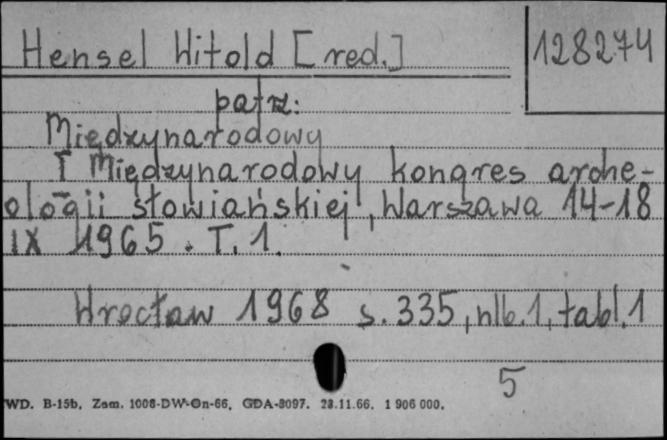 Hensel Witold [red.]
128274
patrz:
Międzynarodowy
I Międzynarodowy kongres arche-
ologii słowiańskiej, Warszawa 14-18
IX 1965. T. 1.
Wrocław 1968 s. 335, nlb. 1, tabl. 1
5
WD. B-15b, Zam. 1008-DW-Gn-66, GDA-3097. 23.11.66. 1 906 000.